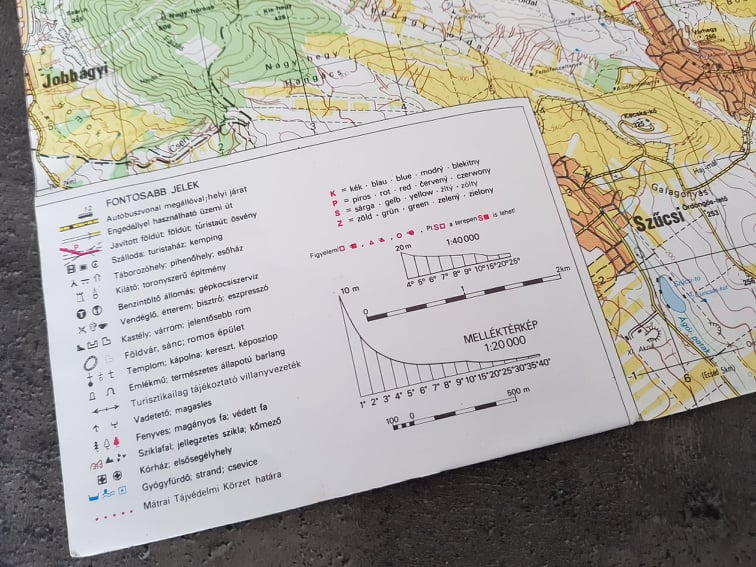 Jobbágyi
Nagy-hársas
509
Kis-hegy
428
Nagy-hegy
Hangács
Várhegy
Kecske-kő
Galagonyás
Ördöngös-tető
253
Szűcsi
FONTOSABB JELEK
Autóbuszvonal megállóval; helyi járat
Engedéllyel használható üzemi út
Javított földút; földút; túristaút; ösvény
Szálloda; turistaház; kemping
Táborozóhely; pihenőhely; esőház
Kilátó; toronyszerű építmény
Benzintöltő állomás; gépkocsiszerviz
Vendéglő, étterem; bisztró; eszpresszó
Kastély; várrom; jelentősebb rom
Földvár, sánc; romos épület
Templom; kápolna; kereszt, képoszlop
Emlékmű; természetes állapotú barlang
Turisztikailag tájékoztató villanyvezeték
Vadetető; magasles
Fenyves; magányos fa; védett fa
Sziklafal; jellegzetes szikla; kőmező
Kórház; elsősegélyhely
Gyógyfürdő; strand; csevice
Mátrai Tájvédelmi Körzet határa
K = kék · blau · blue · modrý · blekitny
P = piros · rot · red · červený · czerwony
S = sárga · gelb · yellow · žltý · zólty
Z = zöld · grün · green · zelený · zielony
Figyelem! Pl. S a terepen S is lehet!
20m 1:40000
4° 5° 6° 7° 8° 9° 10° 15° 20° 25°
0 1 2km
10 m
MELLÉKTÉRKÉP
1:20 000
1° 2° 3° 4° 5° 6° 7° 8° 9° 10° 15° 20° 25° 30° 35° 40°
100 0 500 m
1
6
(Ecséd 5km)